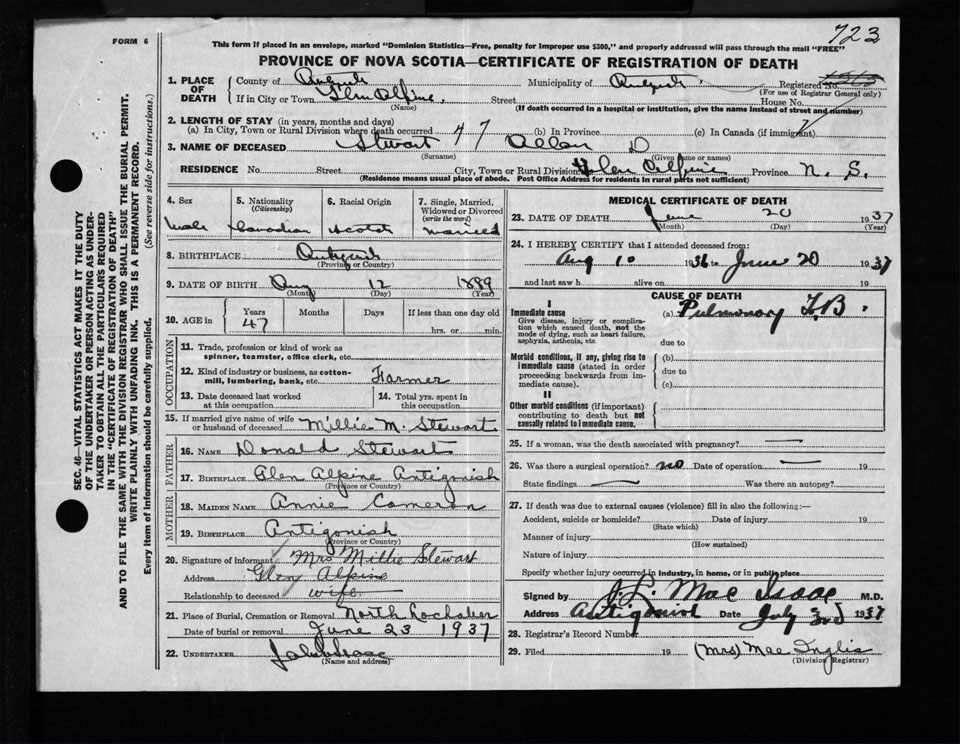 723
FORM 6
This form if placed in an envelope, marked "Dominion Statistics—Free, penalty for improper use $300," and properly addressed will pass through the mail "FREE"
PROVINCE OF NOVA SCOTIA—CERTIFICATE OF REGISTRATION OF DEATH
SEC. 46—VITAL STATISTICS ACT MAKES IT THE DUTY
OF THE UNDERTAKER OR PERSON ACTING AS UNDER-
TAKER TO OBTAIN ALL THE PARTICULARS REQUIRED
IN THE "CERTIFICATE OF REGISTRATION OF DEATH"
AND TO FILE THE SAME WITH THE DIVISION REGISTRAR WHO SHALL ISSUE THE BURIAL PERMIT.
WRITE PLAINLY WITH UNFADING INK. THIS IS A PERMANENT RECORD.
Every item of information should be carefully supplied. (See reverse side for instructions.)
1. PLACE OF DEATH
County of Municipality of Registered No.
(For use of Registrar General only)
If in City or Town Glen Alpine Street House No.
(Name) (If death occurred in a hospital or institution, give the name instead of street and number)
2. LENGTH OF STAY (in years, months and days)
(a) In City, Town or Rural Division where death occurred 47 (b) In Province (c) In Canada (if immigrant)
3. NAME OF DECEASED Stewart Allan D
(Surname) (Given name or names)
RESIDENCE No. Street City, Town or Rural Division Glen Alpine Province N. S.
(Residence means usual place of abode. Post Office Address for residents in rural parts not sufficient)
4. Sex 5. Nationality (Citizenship) 6. Racial Origin 7. Single, Married, Widowed or Divorced (write the word)
Male Canadian Scotch Married
8. BIRTHPLACE Antigonish
(Province or Country)
9. DATE OF BIRTH Aug 12 1889
(Month) (Day) (Year)
10. AGE in Years Months Days If less than one day old
47 hrs. or min.
OCCUPATION
11. Trade, profession or kind of work as
spinner, teamster, office clerk, etc.
12. Kind of industry or business, as cotton-
mill, lumbering, bank, etc. Farmer
13. Date deceased last worked at this occupation 14. Total yrs. spent in this occupation
15. If married give name of wife
or husband of deceased Millie M. Stewart
FATHER
16. NAME Donald Stewart
17. BIRTHPLACE Glen Alpine Antigonish
(Province or Country)
MOTHER
18. MAIDEN NAME Annie Cameron
19. BIRTHPLACE Antigonish
(Province or Country)
20. Signature of informant Mrs Millie Stewart
Address Glen Alpine
Relationship to deceased wife
21. Place of Burial, Cremation or Removal North Lochaber
Date of burial or removal June 23 1937
22. UNDERTAKER
(Name and address)
MEDICAL CERTIFICATE OF DEATH
23. DATE OF DEATH June 20 1937
(Month) (Day) (Year)
24. I HEREBY CERTIFY that I attended deceased from:
Aug 10 1936 to June 20 1937
and last saw h alive on 19
CAUSE OF DEATH
I
Immediate cause (a) Pulmonary T.B.
Give disease, injury or complica-
tion which caused death, not the
mode of dying, such as heart failure,
asphyxia, asthenia, etc. due to
Morbid conditions, if any, giving rise to (b)
immediate cause (stated in order due to
proceeding backwards from im-
mediate cause). (c)
II
Other morbid conditions (if important)
contributing to death but not
causally related to immediate cause.
25. If a woman, was the death associated with pregnancy?
26. Was there a surgical operation? no Date of operation 19
State findings Was there an autopsy?
27. If death was due to external causes (violence) fill in also the following:—
Accident, suicide or homicide? Date of injury 19
(State which)
Manner of injury
(How sustained)
Nature of injury
Specify whether injury occurred in industry, in home, or in public place
Signed by J. L. Mac Isaac M.D.
Address Antigonish Date July 3rd 1937
28. Registrar's Record Number
29. Filed 19 (Mrs) Mae Inglis
(Division Registrar)